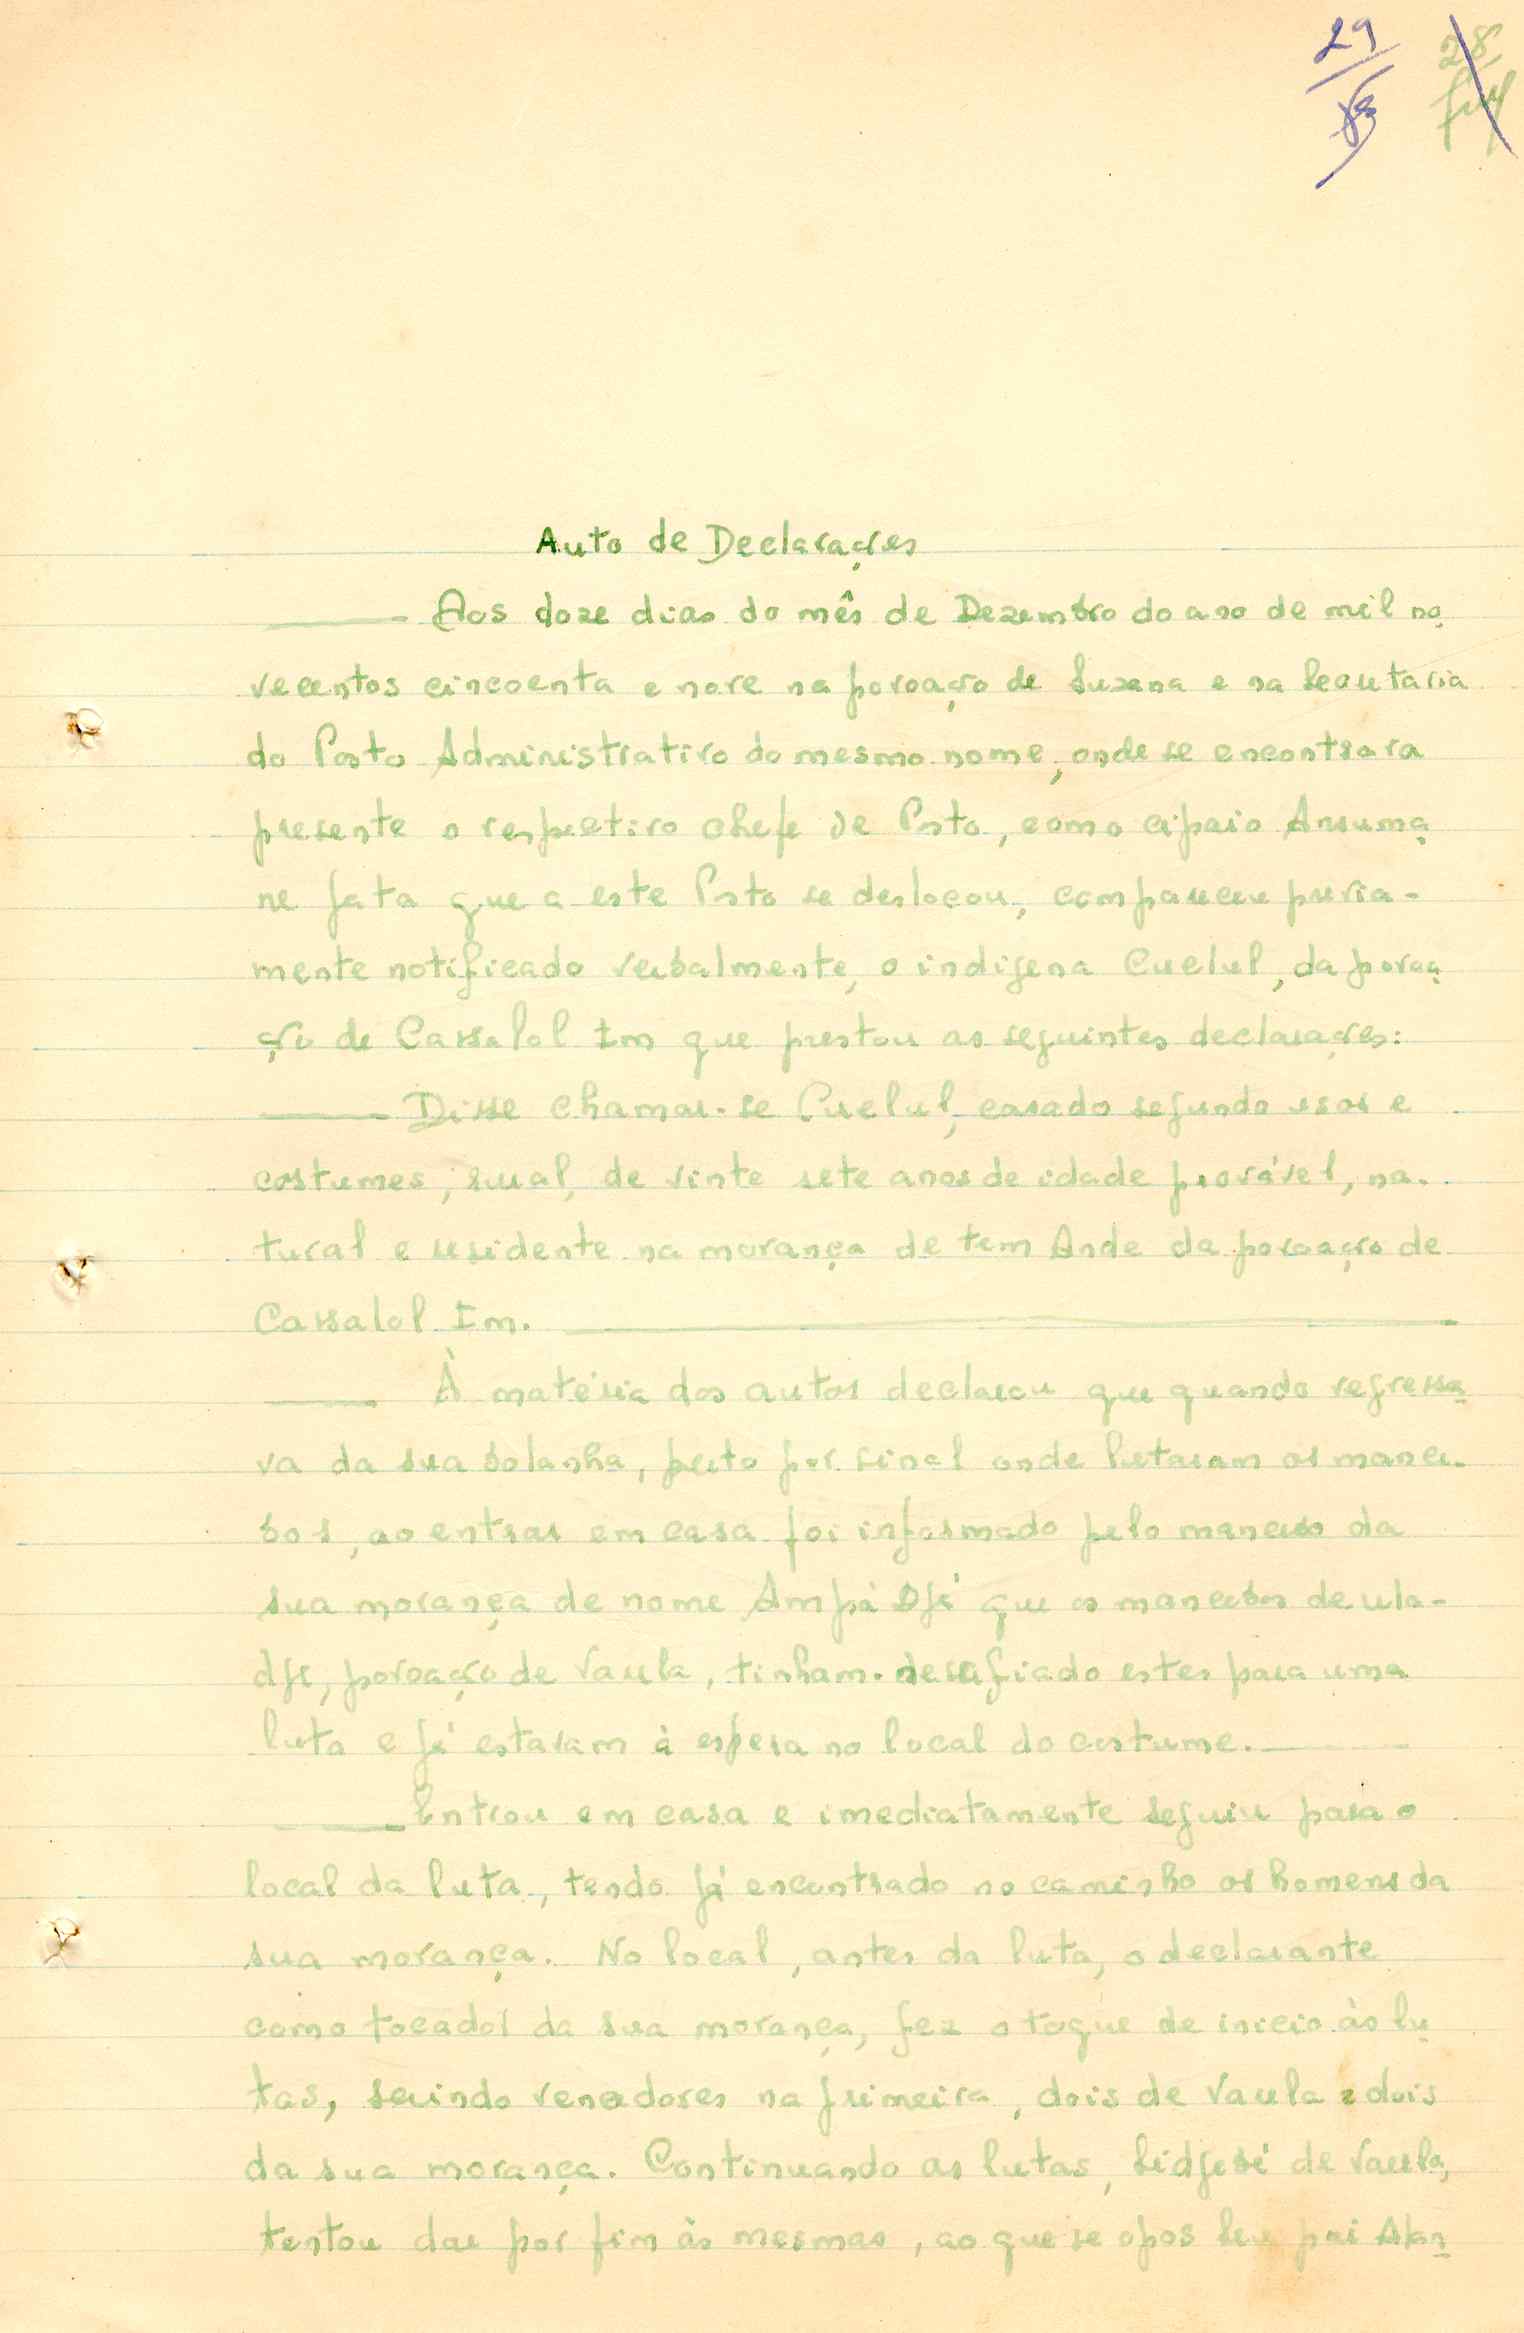 29
28
Auto de Declarações
Aos doze dias do mês de Dezembro do ano de mil no
vecentos cincoenta e nove na povoação de Suzana e na Secretaria
do Posto Administrativo do mesmo nome, onde se encontrava
presente o respectivo chefe de Posto, como cipaio Ansuma
ne fata que a este Posto se deslocou, compareceu previa-
mente notificado verbalmente, o indigena Cuelul, da povoa
ção de Cassalol Im que prestou as seguintes declarações:
Disse chamar-se Cuelul, casado segundo usos e
costumes, rural, de vinte sete anos de idade provável, na-
tural e residente na morança de tem Ande da povoação de
Cassalol Im.
À matéria dos autos declarou que quando regressa
va da sua bolanha, perto por sinal onde lutaram os mance-
bos, ao entrar em casa foi informado pelo mancebo da
sua morança de nome Ampá Djá que os mancebos de ula-
dje, povoação de Vaula, tinham desafiado estes para uma
luta e já estavam à espera no local do costume.
Entrou em casa e imediatamente seguiu para o
local da luta, tendo já encontrado no caminho os homens da
sua morança. No local, antes da luta, o declarante
como tocador da sua morança, fez o toque de inicio às lu
tas, saindo vencedores na primeira, dois de Vaula e dois
da sua morança. Continuando as lutas, Sidjesé de Vaula,
tentou dar por fim às mesmas, ao que se opos seu pai